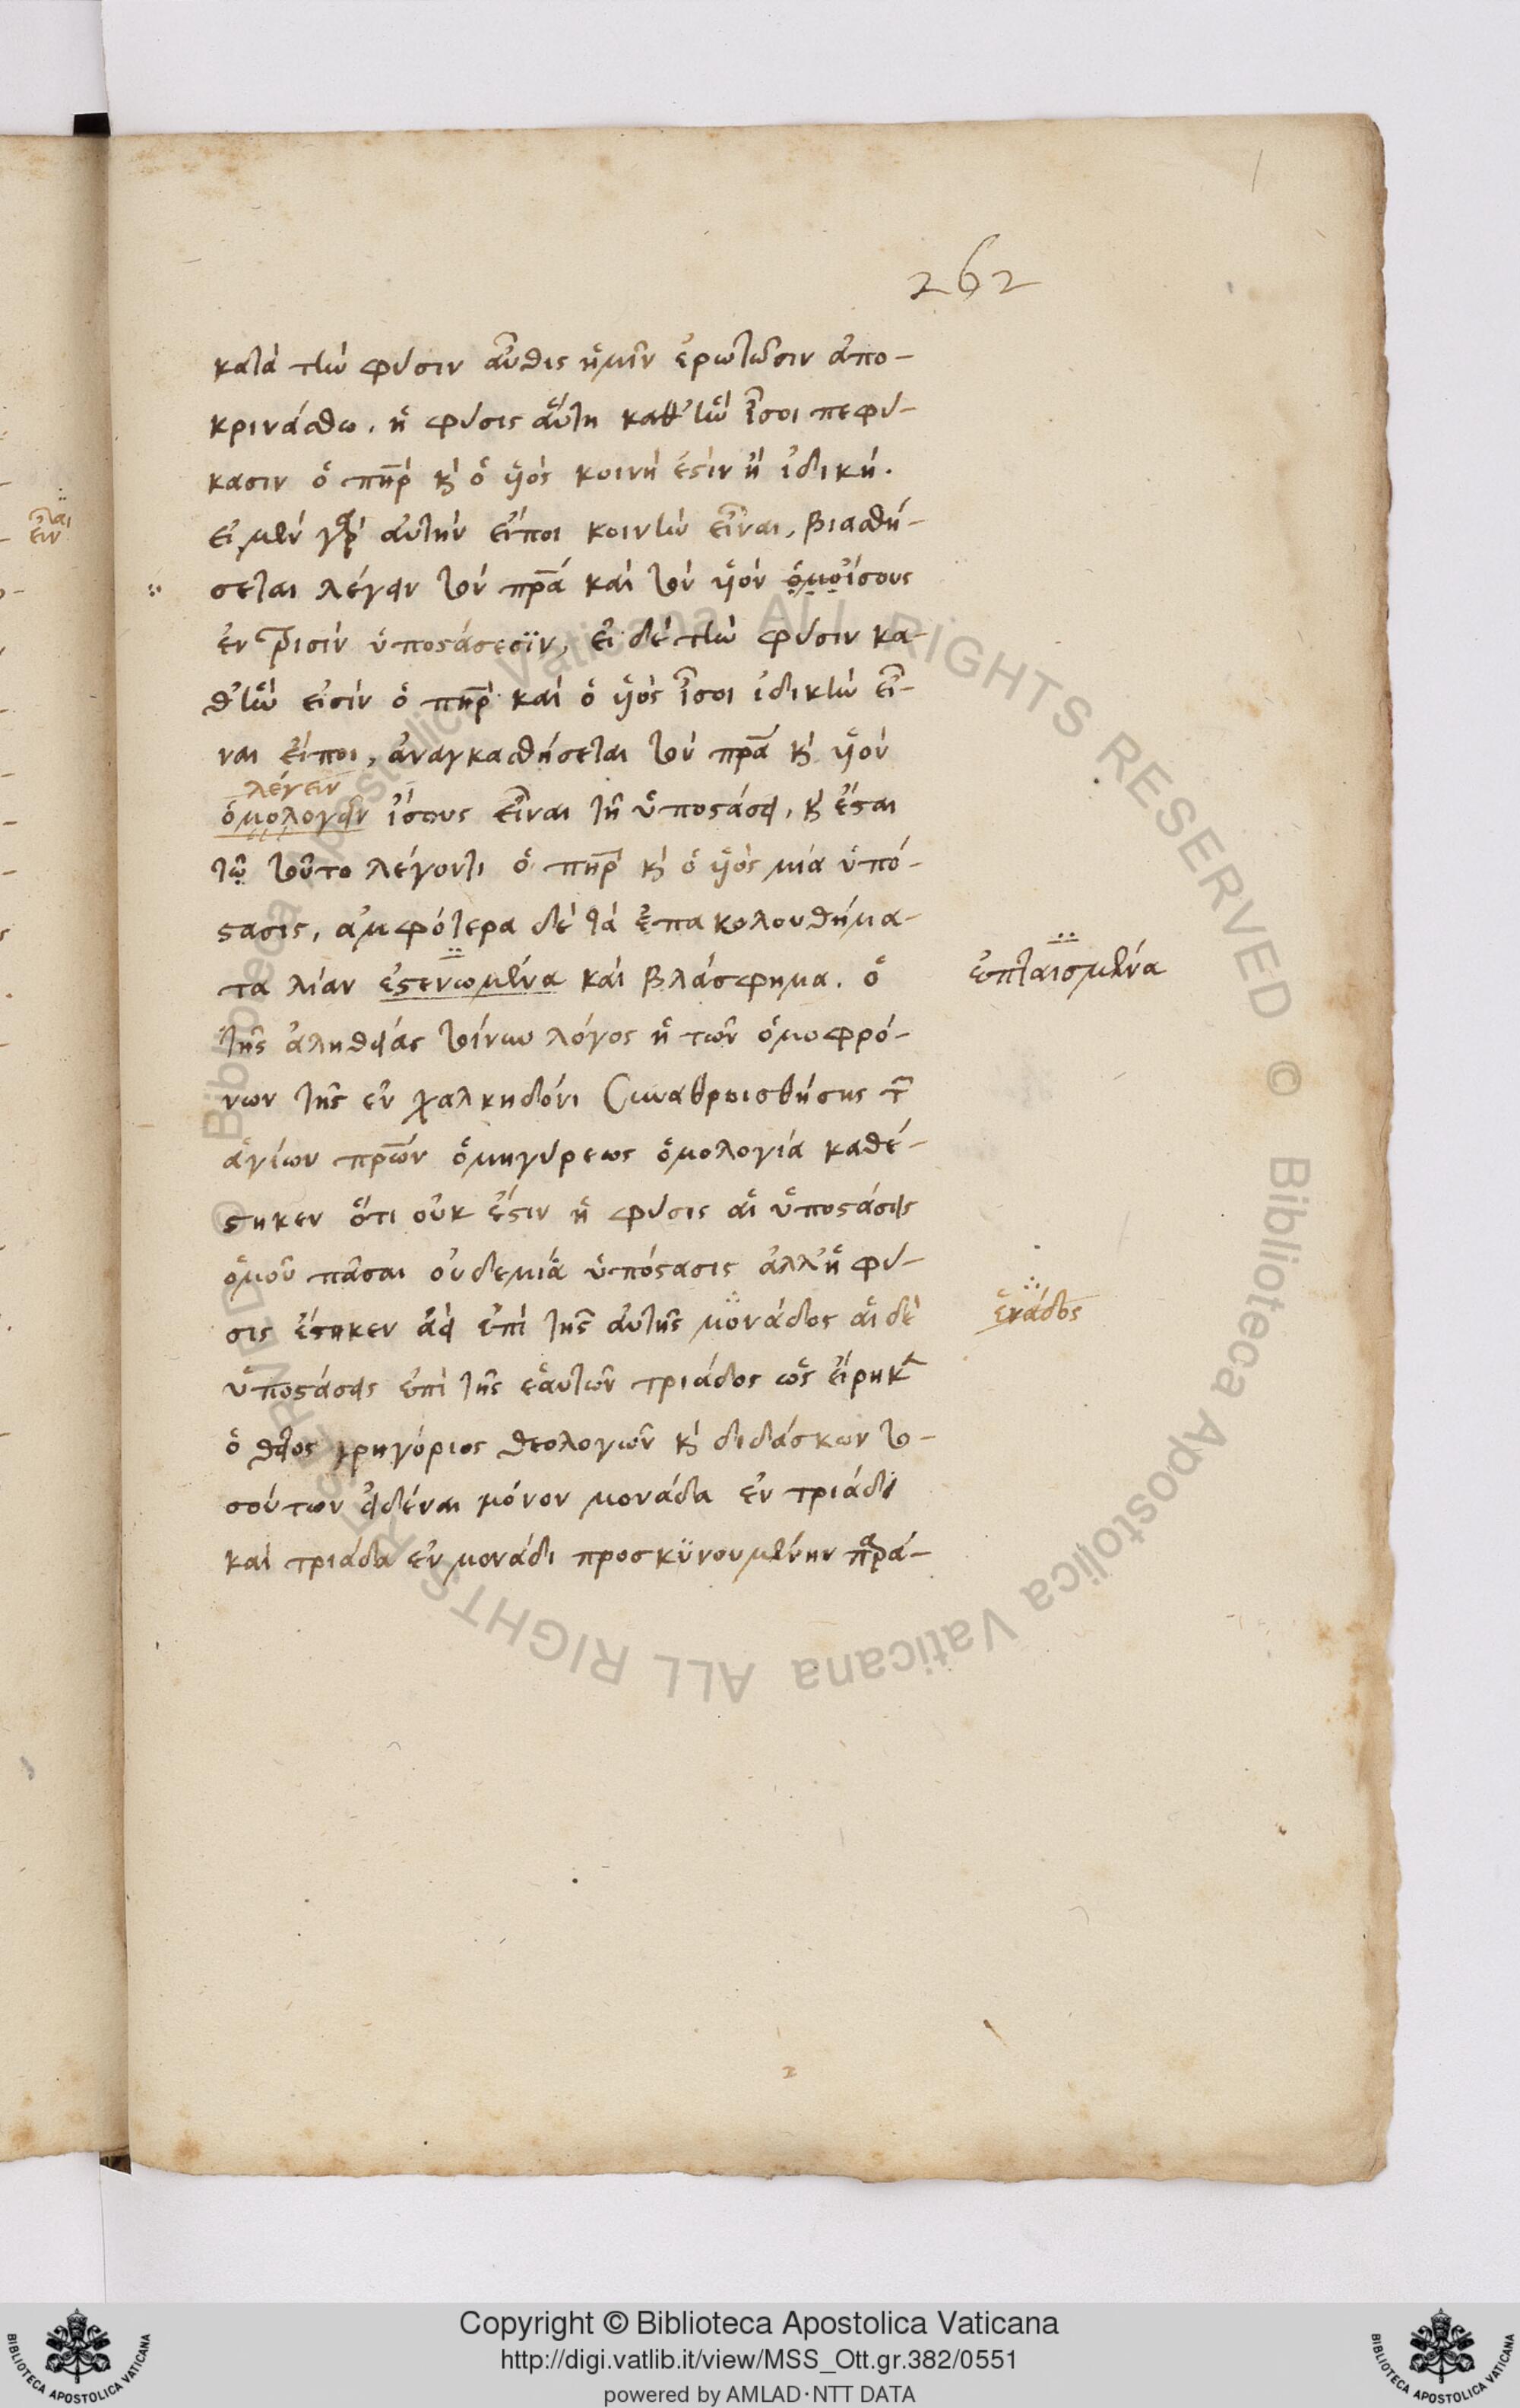 262
κατὰ τὴν φύσιν αὖθις ἡμῖν ἐρωτῶσιν ἀπο-
κρινάσθω. ἡ φύσις αὕτη καθ' ἣν ἴσοι πεφύ-
κασιν ὁ πηρ καὶ ὁ υἱὸς κοινή ἐστιν ἢ ἰδική.
εἰ μὲν γὰρ αὐτὴν εἴποι κοινὴν εἶναι, βιασθή-
σεται λέγειν τὸν πρα καὶ τὸν υἱὸν ὁμοΐσους
ἐν τρισὶν ὑποστάσεσϊν, εἰ δὲ τὴν φύσιν κα-
θ' ἣν εἰσὶν ὁ πηρ καὶ ὁ υἱὸς ἴσοι ἰδικὴν εἶ-
ναι εἴποι, ἀναγκασθήσεται τὸν πρα καὶ υἱὸν
λέγειν
ὁμολογεῖν ἴσους εἶναι τῇ ὑποστάσει, καὶ ἔσται
τῷ τοῦτο λέγοντι ὁ πηρ καὶ ὁ υἱὸς μία ὑπό-
στασις, ἀμφότερα δὲ τὰ ἐπακολουθήμα-
τα λίαν ἐστενωμένα καὶ βλάσφημα. ὁ
ἐπταισμένα
τῆς ἀληθείας τοίνυν λόγος ἡ τῶν ὁμοφρό-
νων τῆς ἐν χαλκηδόνι συναθροισθήσης τῶν
ἁγίων πρων ὁμηγύρεως ὁμολογία καθέ-
στηκεν ὅτι οὐκ ἔστιν ἡ φύσις αἱ ὑποστάσεις
ὁμοῦ πᾶσαι οὐδεμιᾶ ὑπόστασις ἀλλ' ἡ φύ-
σις ἕστηκεν ἀεὶ ἐπὶ τῆς αὐτῆς μονάδος αἱ δὲ
ἑνάδος
ὑποστάσεις ἐπὶ τῆς ἑαυτῶν τριάδος ὡς εἴρηκε
ὁ θεῖος γρηγόριος θεολογῶν καὶ διδάσκων το-
σούτων εἰδέναι μόνον μονάδα ἐν τριάδι
καὶ τριάδα ἐν μονάδι προσκϋνουμένην παρά-
Copyright © Biblioteca Apostolica Vaticana
http://digi.vatlib.it/view/MSS_Ott.gr.382/0551
powered by AMLAD·NTT DATA